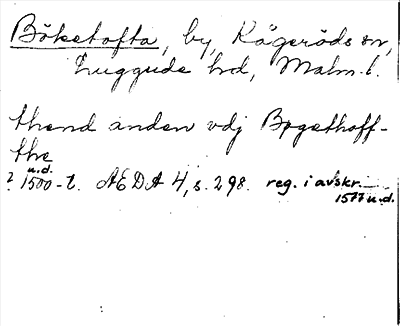 Böketofta, by, Kågeröds sn,
Luggude hd, Malm. l.
thend anden vdj Bøgethoff-
the
u.d.
? 1500-t. AEDA 4, s. 298. reg. i avskr.
1577 u.d.